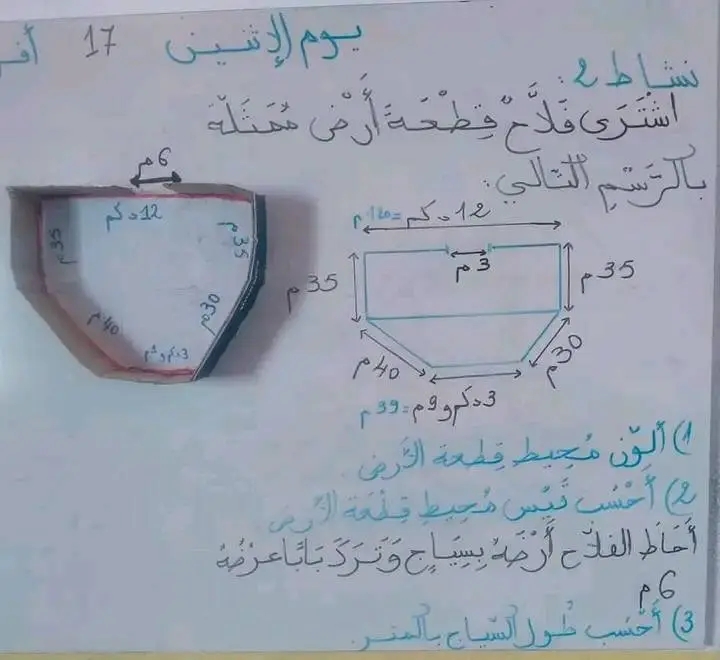 يوم الإثنين 17 أفر
نشاط 2:
اشْتَرَى فَلاَّحٌ قِطْعَةَ أَرْضٍ مُمَثَّلَة
بالرَّسْمِ التّالي:
6م
12دكم
35م
35م
40م
30م
3دكم و9م
12دكم =120م
3م
35م
35م
40م
30م
3دكم و9م =39م
1) ألوّن مُحيط قطعة الأرض.
2) أَحْسُب قَيْس مُحيط قِطْعَة الأرض
أَحَاطَ الفلاّح أَرْضَهُ بِسِيَاجٍ وَتَرَكَ بَابًا عرْضُهُ
6م
3) أَحْسُب طول السّياج بالمتر.